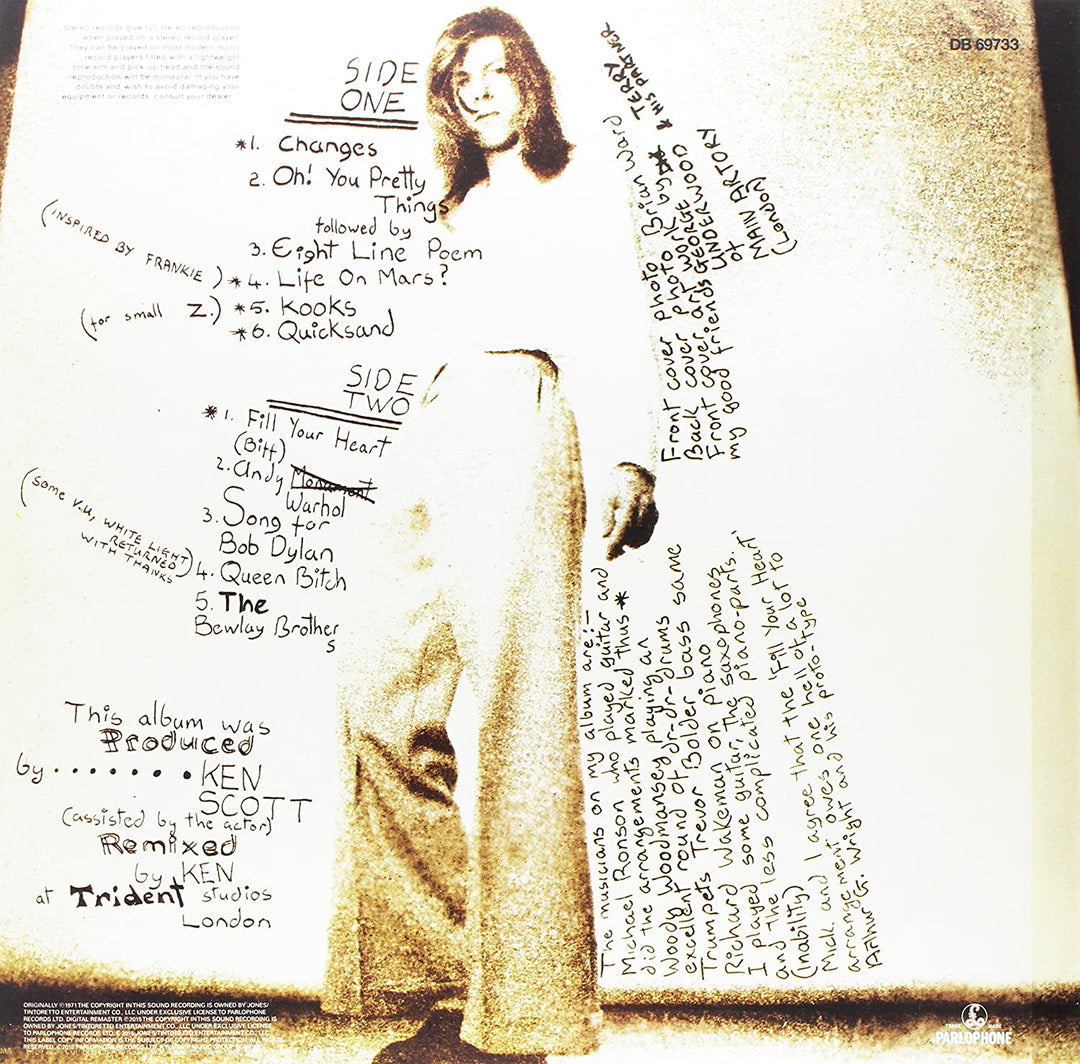 Stereo records give full stereo reproduction
when played on a stereo record player.
They can be played on most modern mono
record players fitted with a lightweight
tone arm and pick-up head and the sound
reproduction will be monaural. If you have
doubts and wish to avoid damaging your
equipment or records, consult your dealer.
DB 69733
SIDE
ONE
*1. Changes
2. Oh! You Pretty
Things
followed by
3. Eight Line Poem
(INSPIRED BY FRANKIE) *4. Life On Mars?
(for small Z.) *5. Kooks
*6. Quicksand
SIDE
TWO
*1. Fill Your Heart
(Biff)
2. Andy Monument
Warhol
3. Song for
Bob Dylan
(Some V.U, WHITE LIGHT
RETURNED
WITH THANKS)
4. Queen Bitch
5. The
Bewlay Brothers
This album was
Produced
by........KEN
SCOTT
(assisted by the actor)
Remixed
by KEN
at Trident studios
London
Front cover photo Brian Ward
Back cover photo by
Front cover art work by TERRY
& HIS PARTNER
my good friends GEORGE UNDERWOOD
of
MAIN ARTORY
(London)
The musicians on my album are:-
Michael Ronson who played guitar and
did the arrangements marked thus *
Woody Woodmansey playing an
excellent round of dr-dr-drums
Trevor Bolder bass same
Trumpets
Richard Wakeman on piano
I played some guitar, the saxophones
and the less complicated piano-parts.
(inability)
Mick and I agree that the 'Fill Your Heart'
arrangement owes one hell of a lot to
Arthur G. Wright and his proto-type
ORIGINALLY ℗1971 THE COPYRIGHT IN THIS SOUND RECORDING IS OWNED BY JONES/
TINTORETTO ENTERTAINMENT CO., LLC UNDER EXCLUSIVE LICENSE TO PARLOPHONE
RECORDS LTD. DIGITAL REMASTER ℗2015 THE COPYRIGHT IN THIS SOUND RECORDING IS
OWNED BY JONES/TINTORETTO ENTERTAINMENT CO., LLC UNDER EXCLUSIVE LICENSE
TO PARLOPHONE RECORDS LTD. © 2015 JONES/TINTORETTO ENTERTAINMENT CO., LLC
THIS LABEL COPY INFORMATION IS THE SUBJECT OF COPYRIGHT PROTECTION. ALL RIGHTS
RESERVED. ©2015 PARLOPHONE RECORDS LTD
TRADE MARK
PARLOPHONE